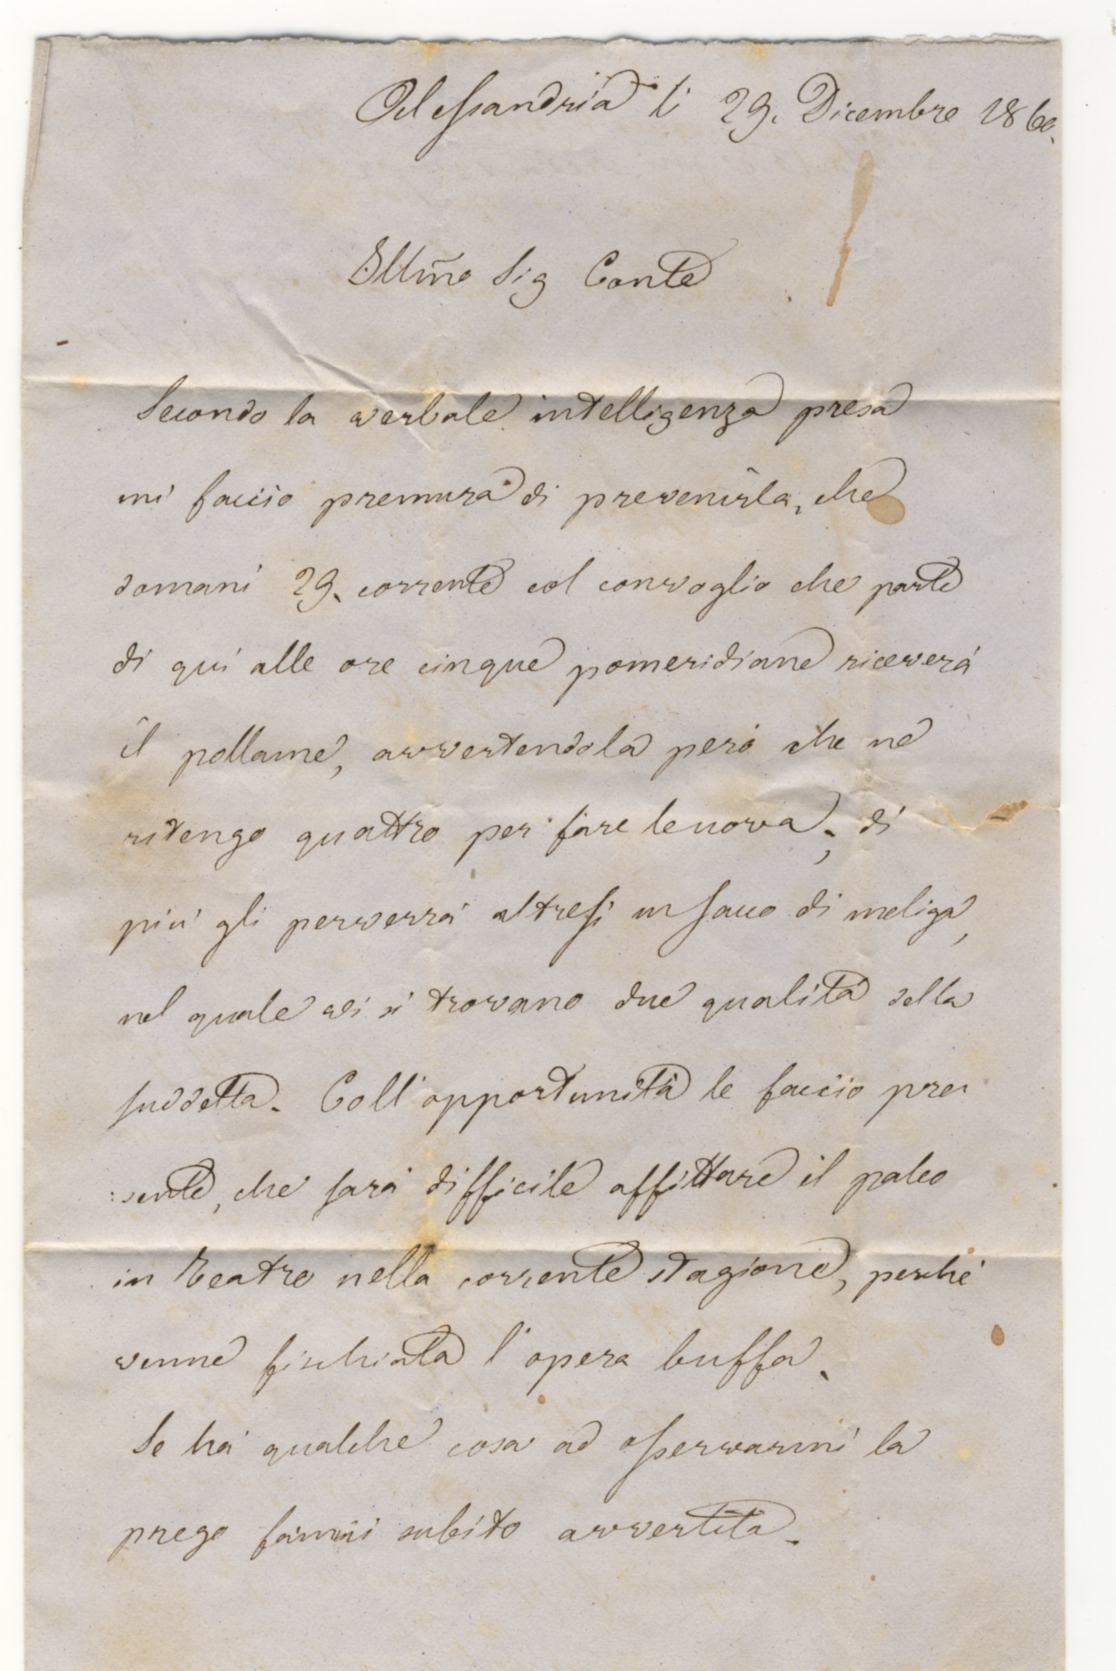 Alessandria li 29. Dicembre 1860.
Illmo Sig Conte
Secondo la verbale intelligenza presa
mi faccio premura di prevenirla, che
domani 29. corrente col convoglio che parte
di qui alle ore cinque pomeridiane riceverà
il pollame, avvertendola però che ne
ritengo quattro per fare le uova; di
più gli perverrà altresì un sacco di meliga,
nel quale vi si trovano due qualità della
suddetta. Coll'opportunità le faccio pre
:sente, che sarà difficile affittare il palco
in Teatro nella corrente stagione, perché
venne fischiata l'opera buffa.
Se ha qualche cosa ad osservarmi la
prego farmi subito avvertita.